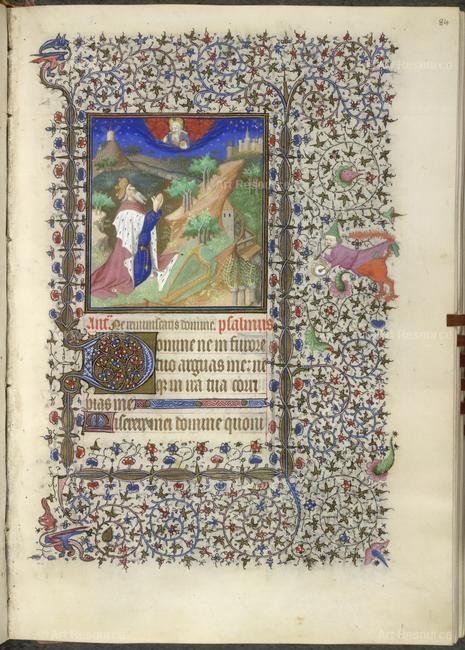 84
Ant. Ne reminiscaris domine. psalmus
Domine ne in furore
tuo arguas me: ne
que in ira tua corri
pias me
Miserere mei domine quoni
Art Resource
Art Resource
Art Resource
Art Resource
Art Resource